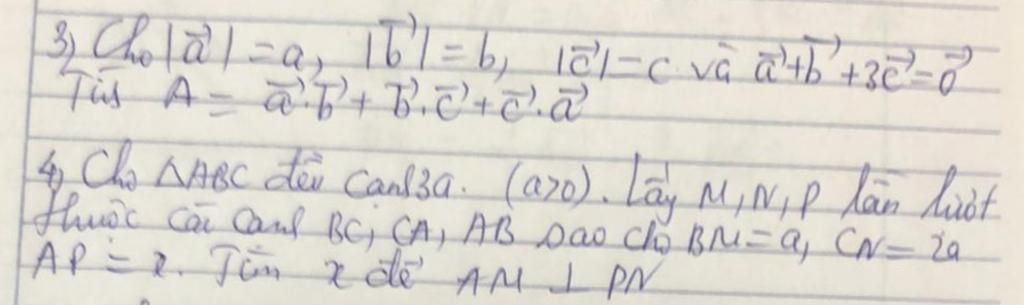 3) Cho |a⃗| = a, |b⃗| = b, |c⃗| = c và a⃗ + b⃗ + 3c⃗ = 0⃗
Tính A = a⃗.b⃗ + b⃗.c⃗ + c⃗.a⃗
4) Cho ΔABC đều cạnh 3a. (a>0). Lấy M, N, P lần lượt
thuộc các cạnh BC, CA, AB sao cho BM = a, CN = 2a
AP = x. Tìm x để AM ⊥ PN